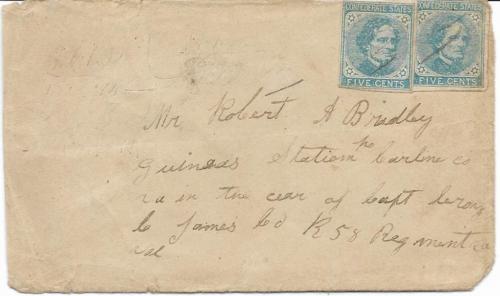 CONFEDERATE STATES CONFEDERATE STATES
FIVE CENTS FIVE CENTS
Mr Robert A Bradley
Guineas Station po Carline co
va in the cear of Capt
C James Co K 58 Regment va
vol